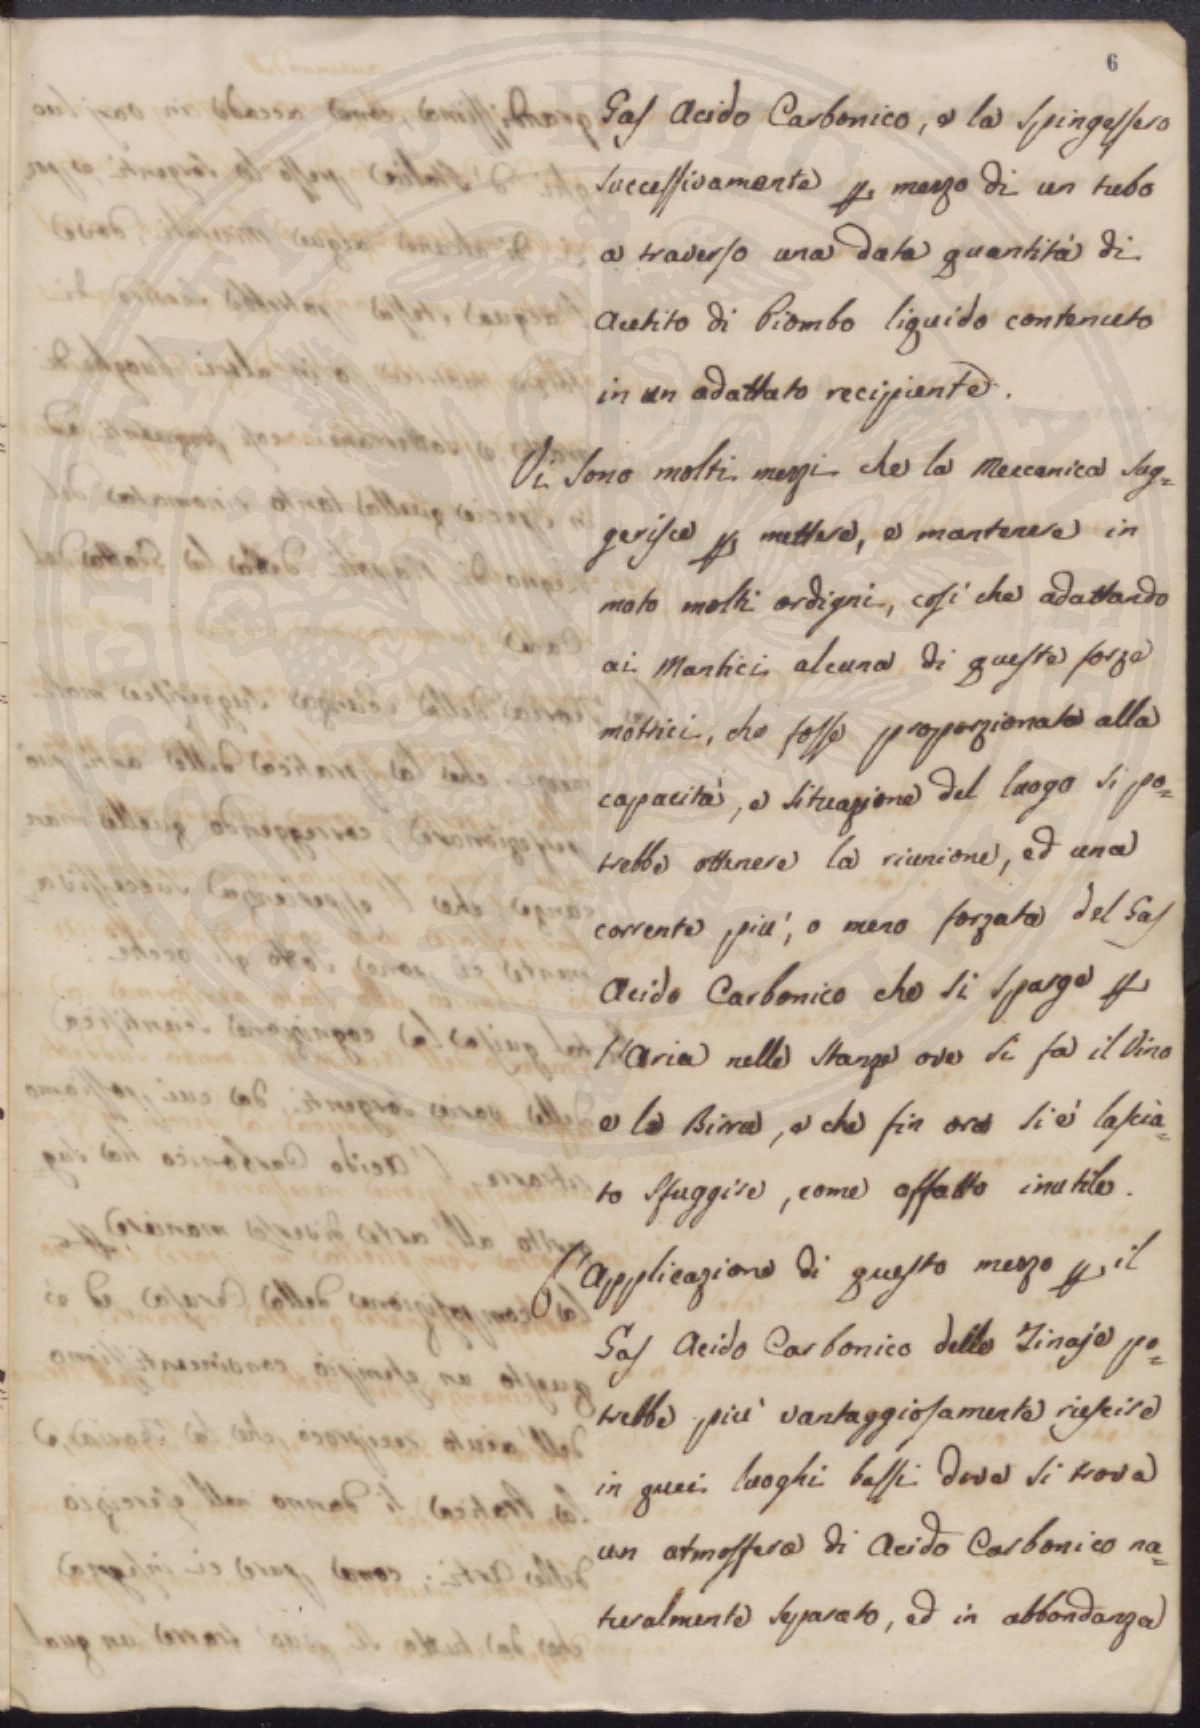 6
Gas Acido Carbonico, e la spingessero
successivamente p. mezzo di un tubo
a traverso una data quantità di
Acetito di Piombo liquido contenuto
in un adattato recipiente.
Vi sono molti mezzi che la Meccanica sug=
gerisce p. mettere, e mantenere in
moto molti ordigni, così che adattando
ai Mantici alcuna di queste forze
motrici, che fosse proporzionata alla
capacità, e situazione del luogo si po=
trebbe ottenere la riunione, ed una
corrente più, o meno forzata del Gas
Acido Carbonico che si sparge p.
l'Aria nelle stanze ove si fa il Vino
e la Birra, e che fin ora si è lascia=
to sfuggire, come affatto inutile.
L'Applicazione di questo mezzo p. il
Gas Acido Carbonico delle Tinaje po=
trebbe più vantaggiosamente riescire
in quei luoghi bassi dove si trova
un atmosfera di Acido Carbonico na=
turalmente separato, ed in abbondanza